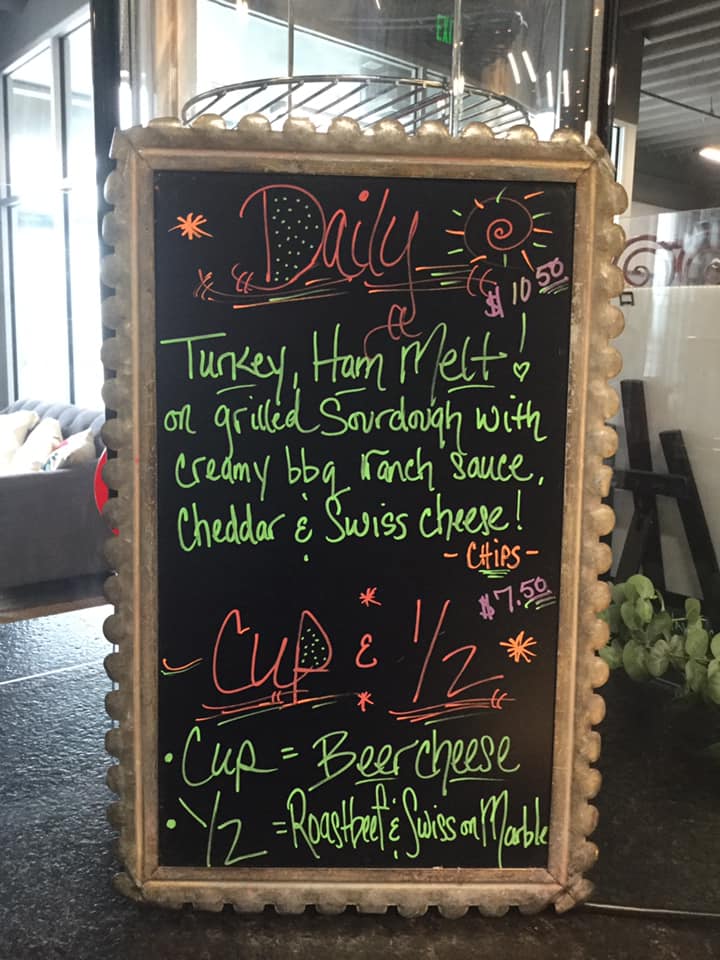 Daily
$10.50
Turkey, Ham Melt!
on grilled Sourdough with
creamy bbq ranch sauce,
Cheddar & Swiss cheese!
- CHIPS -
$7.50
Cup & 1/2
• Cup = Beer cheese
• 1/2 = Roastbeef & Swiss on Marble